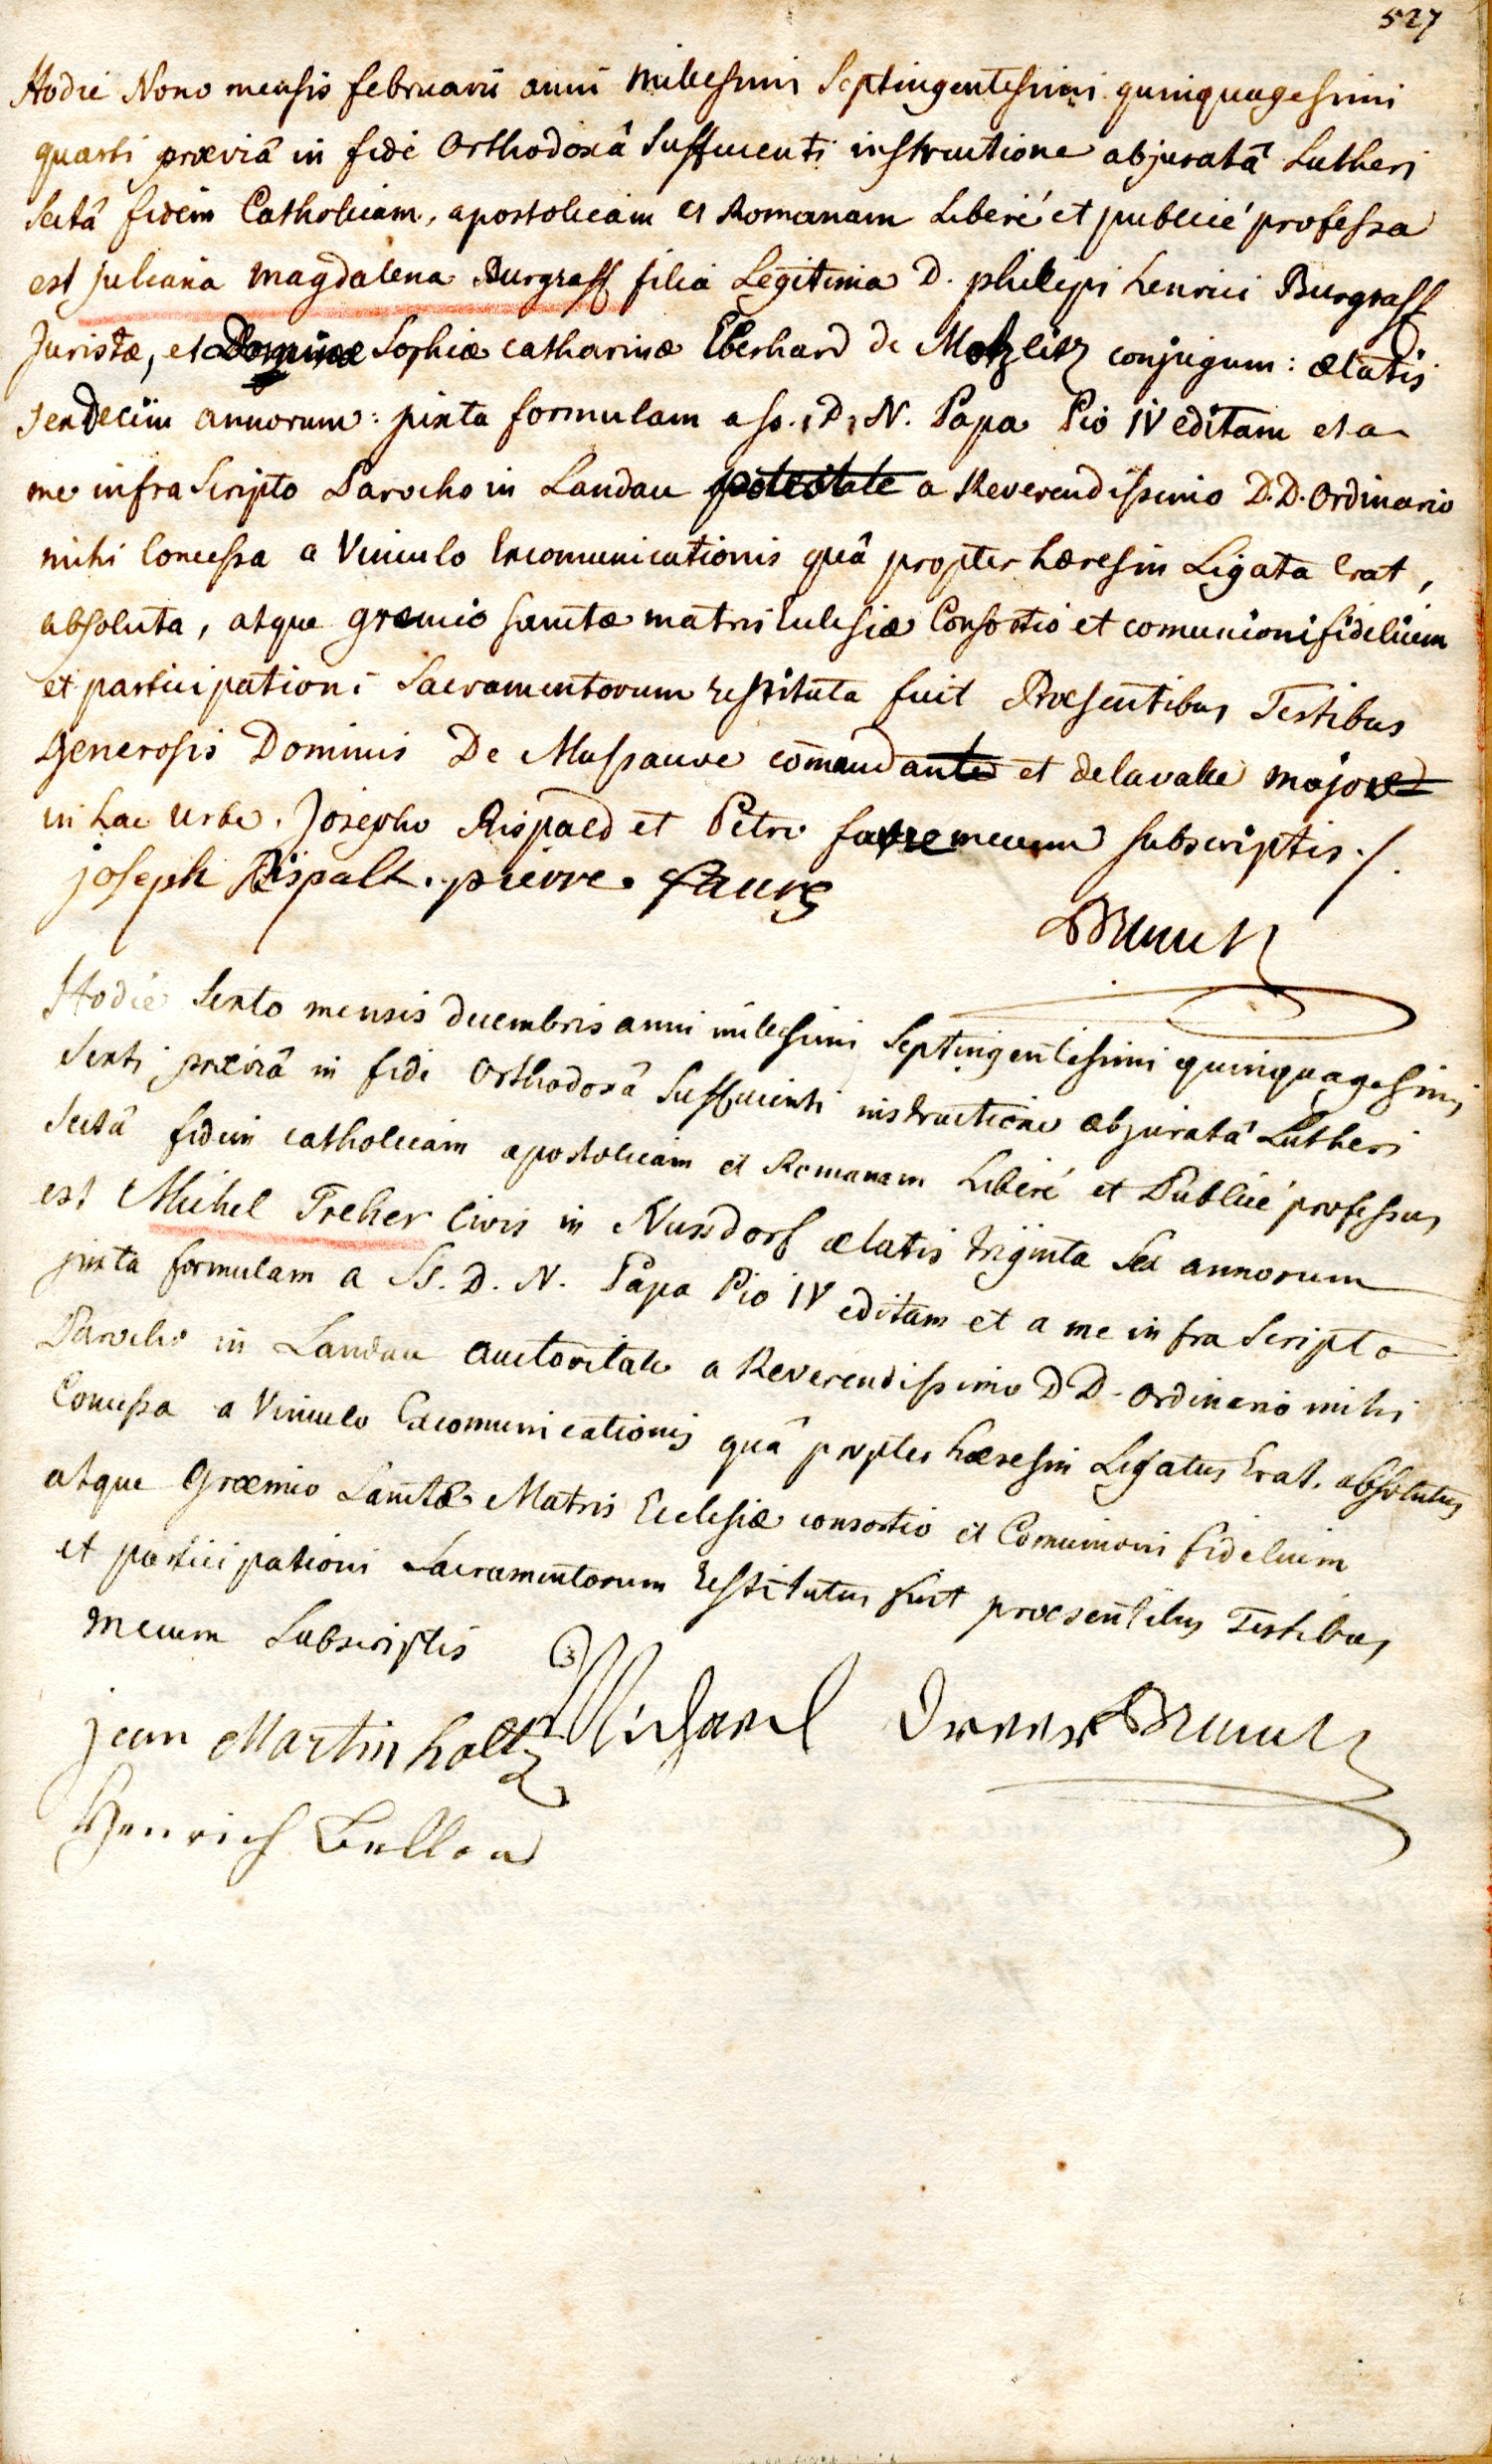 527
Hodie Nono mensis februarii anni millesimi Septingentesimi quinquagesimi
quarti præviâ in fide Orthodoxâ Sufficienti instructione abjuratâ Lutheri
Sectâ fidem Catholicam, apostolicam et Romanam Liberé et publicé professa
est juliana magdalena Burgraff filia Legitima D. philippi henrici Burgraff
Juristæ, et Dominæ Sophiæ catharinæ Eberhard de conjugum: ætatis
sexdecim annorum: juxta formulam a ss. D. N. Papa Pio IV editam et a
me infra Scripto Parocho in Landau potestate a Reverendissimo D.D. Ordinario
mihi Concessa a Vinculo Excomunicationis quâ propter hæresin Ligata Erat,
absoluta, atque gremio sanctæ matris Eclesiæ Consortio et comunioni fidelium
et participationi Sacramentorum restituta fuit Præsentibus Testibus
generosis Dominis De Massauve comandante et delavalle majore
in hac urbe. Josepho Rispald et Petro faure mecum subscriptis ./.
joseph Rispalt. pierre. faure
Hodie Sexto mensis decembris anni millesimi Septingentesimi quinquagesimi
Sexti præviâ in fide Orthodoxâ Sufficienti instructione abjuratâ Lutheri
Sectâ fidem catholicam apostolicam et Romanam Liberé et Publicé professus
est Michel Treher Civis in Nussdorf ætatis triginta Sex annorum
juxta formulam a SS. D. N. Papa Pio IV editam et a me infra Scripto
Parocho in Landau auctoritate a Reverendissimo D D. Ordinario mihi
Concessa a Vinculo Excomunicationis quâ propter hæresin Ligatus Erat. absolutus
atque Græmio Sanctæ Matris Ecclesiæ consortio et Comunioni fidelium
et participationi Sacramentorum restitutus fuit præsentibus Testibus
mecum Subscriptis
jean Martin holtz Michael
Henrich